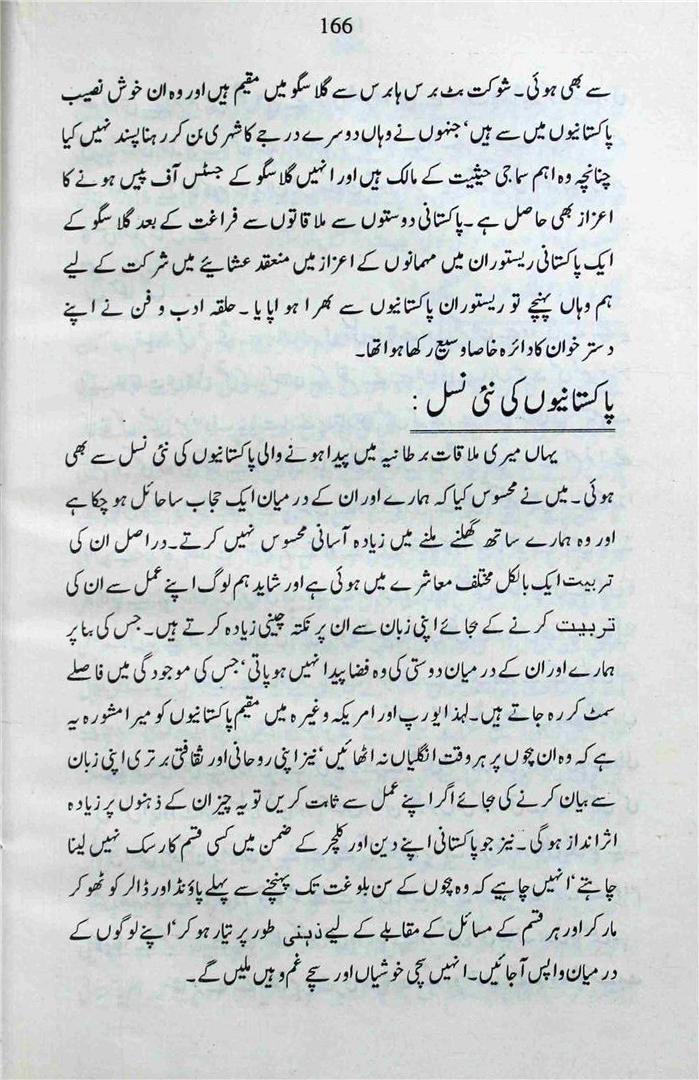 166
سے بھی ہوئی۔ شوکت بٹ برس ہا برس سے گلاسگو میں مقیم ہیں اور وہ ان خوش نصیب
پاکستانیوں میں سے ہیں‘ جنہوں نے وہاں دوسرے درجے کا شہری بن کر رہنا پسند نہیں کیا
چنانچہ وہ اہم سماجی حیثیت کے مالک ہیں اور انہیں گلاسگو کے جسٹس آف پیس ہونے کا
اعزاز بھی حاصل ہے۔ پاکستانی دوستوں سے ملاقاتوں سے فراغت کے بعد گلاسگو کے
ایک پاکستانی ریستوران میں مہمانوں کے اعزاز میں منعقد عشائیے میں شرکت کے لیے
ہم وہاں پہنچے تو ریستوران پاکستانیوں سے بھرا ہوا پایا۔ حلقہ ادب و فن نے اپنے
دسترخوان کا دائرہ خاصا وسیع رکھا ہوا تھا۔
پاکستانیوں کی نئی نسل :
یہاں میری ملاقات برطانیہ میں پیدا ہونے والی پاکستانیوں کی نئی نسل سے بھی
ہوئی۔ میں نے محسوس کیا کہ ہمارے اور ان کے درمیان ایک حجاب سا حائل ہو چکا ہے
اور وہ ہمارے ساتھ گھلنے ملنے میں زیادہ آسانی محسوس نہیں کرتے۔ دراصل ان کی
تربیت ایک بالکل مختلف معاشرے میں ہوئی ہے اور شاید ہم لوگ اپنے عمل سے ان کی
تربیت کرنے کے بجائے اپنی زبان سے ان پر نکتہ چینی زیادہ کرتے ہیں۔ جس کی بنا پر
ہمارے اور ان کے درمیان دوستی کی وہ فضا پیدا نہیں ہو پاتی‘ جس کی موجودگی میں فاصلے
سمٹ کر رہ جاتے ہیں۔ لہذا یورپ اور امریکہ وغیرہ میں مقیم پاکستانیوں کو میرا مشورہ یہ
ہے کہ وہ ان بچوں پر ہر وقت انگلیاں نہ اٹھائیں‘ نیز اپنی روحانی اور ثقافتی برتری اپنی زبان
سے بیان کرنے کی بجائے اگر اپنے عمل سے ثابت کریں تو یہ چیز ان کے ذہنوں پر زیادہ
اثر انداز ہوگی۔ نیز جو پاکستانی اپنے دین اور کلچر کے ضمن میں کسی قسم کا رسک نہیں لینا
چاہتے‘ انہیں چاہیے کہ وہ بچوں کے سن بلوغت تک پہنچنے سے پہلے پاؤنڈ اور ڈالر کو ٹھوکر
مار کر اور ہر قسم کے مسائل کے مقابلے کے لیے ذہنی طور پر تیار ہو کر‘ اپنے لوگوں کے
درمیان واپس آ جائیں۔ انہیں سچی خوشیاں اور سچے غم وہیں ملیں گے۔